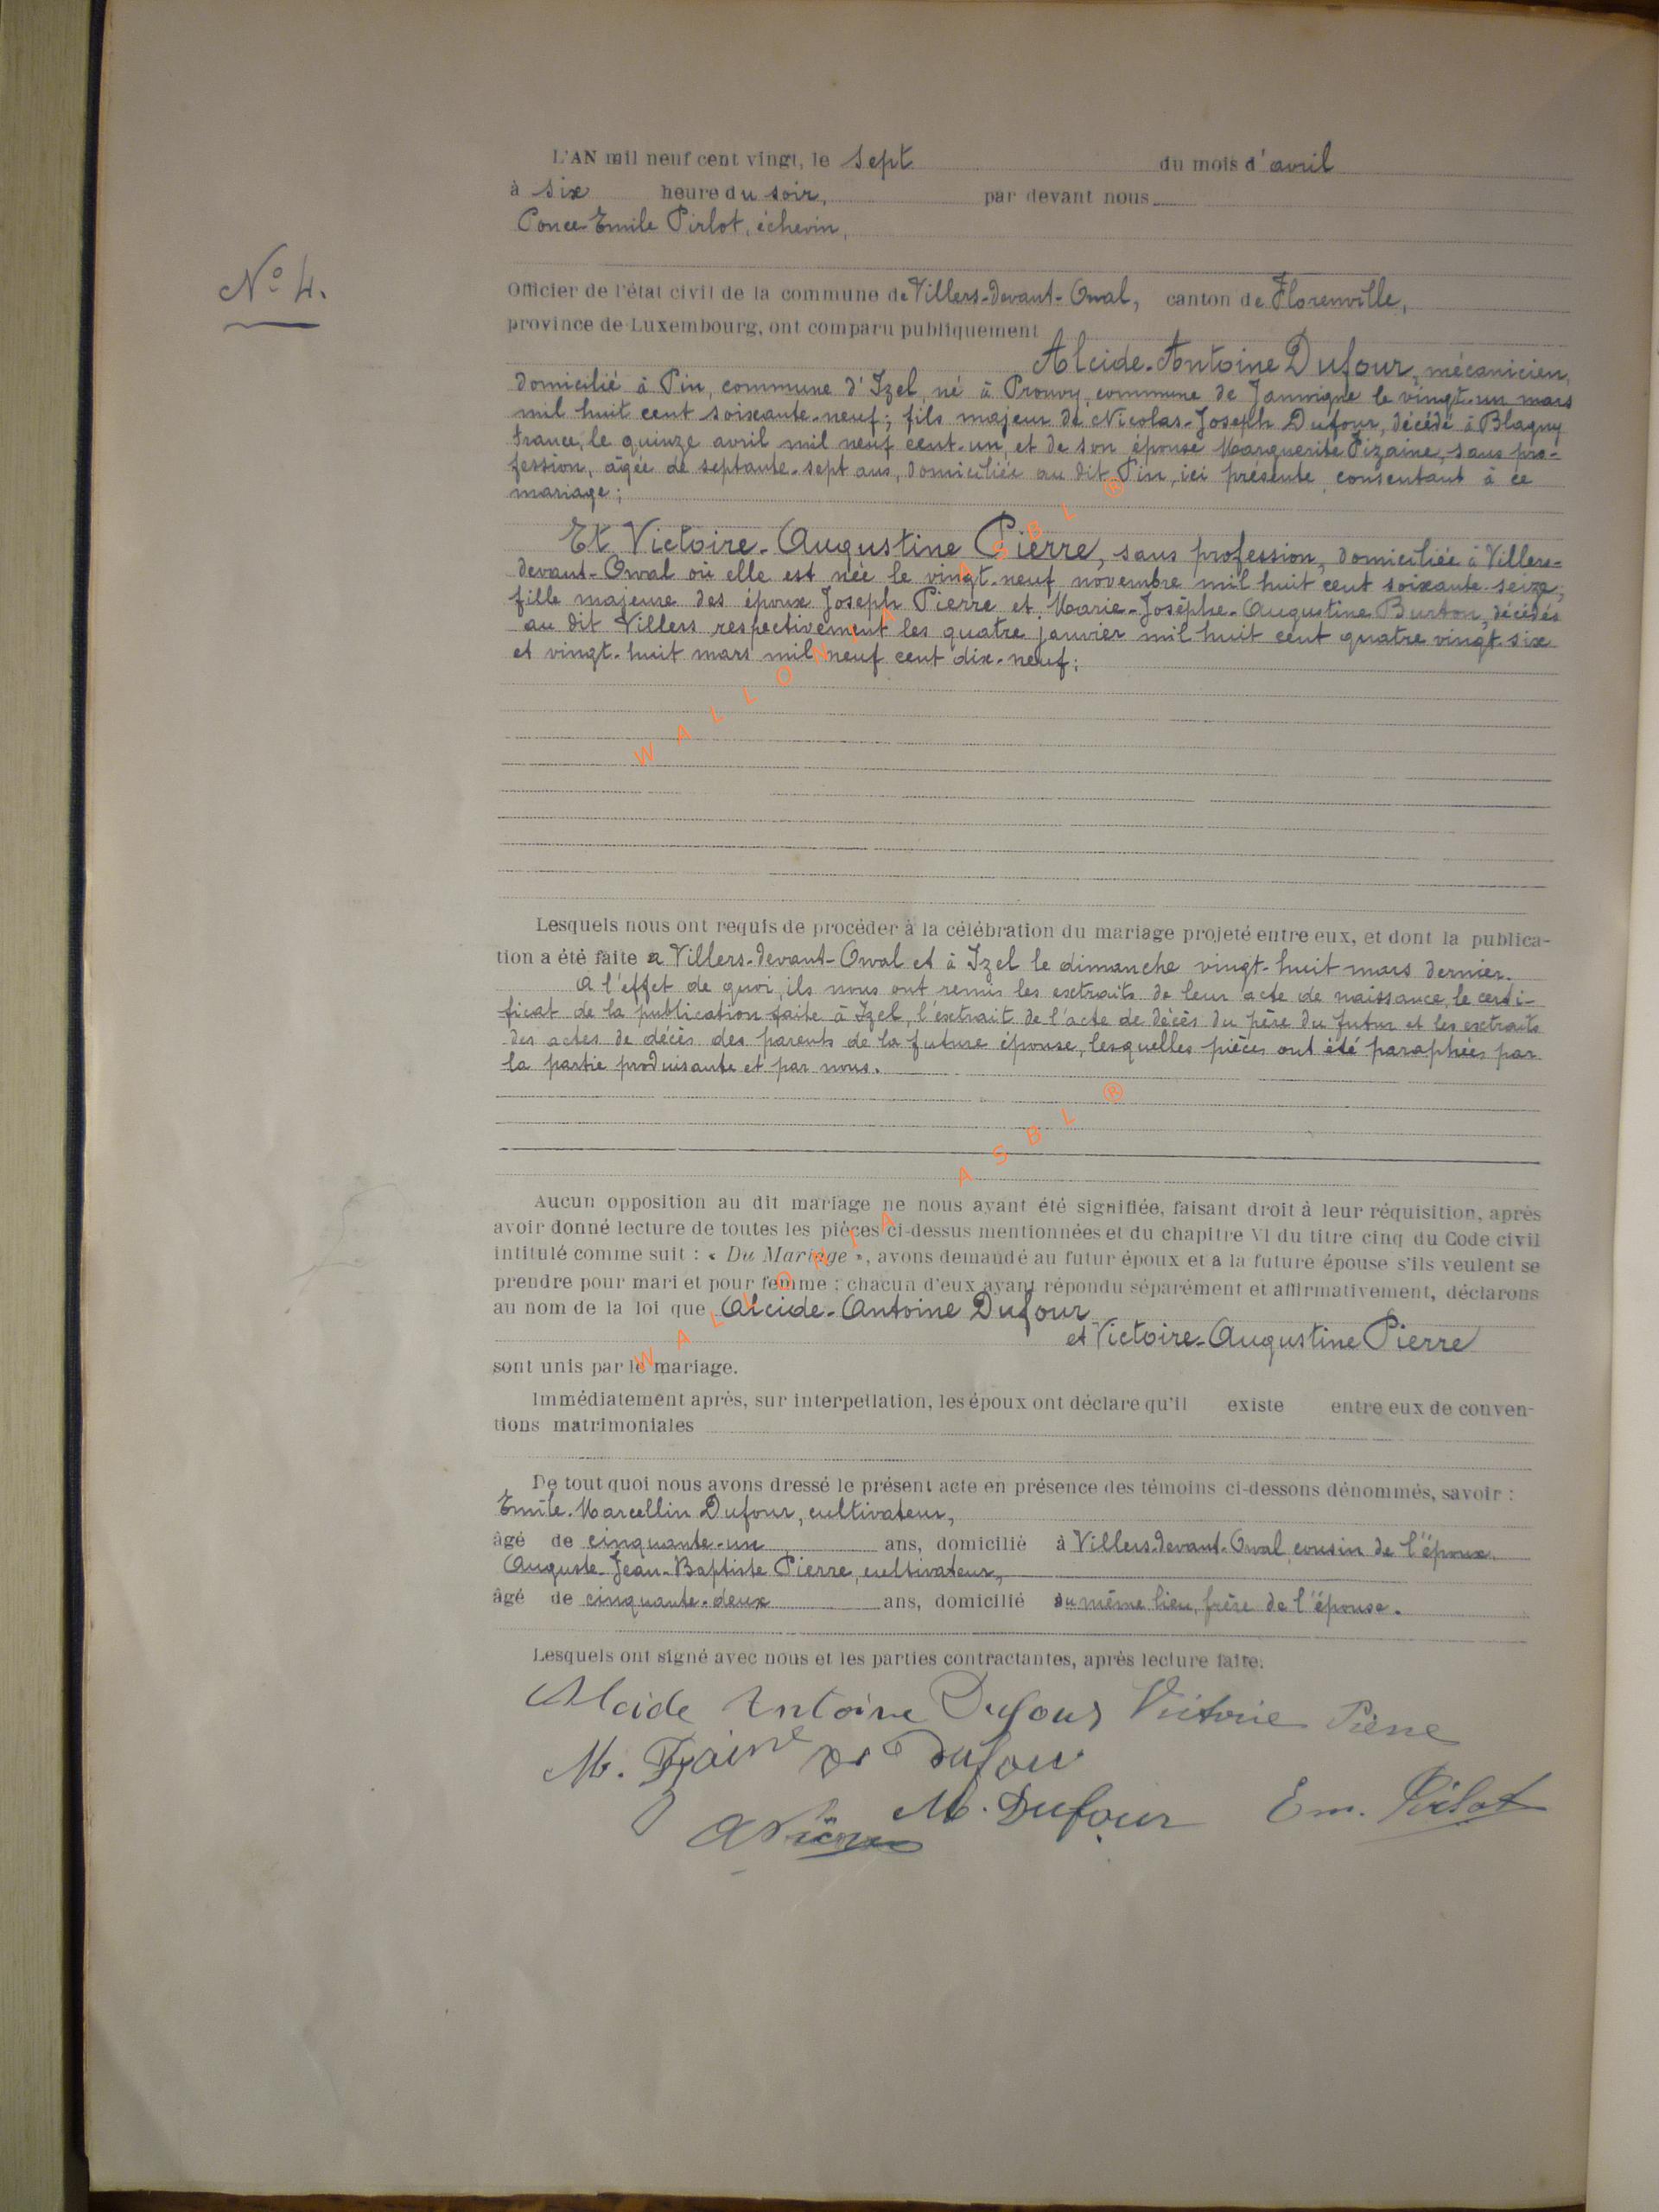 L'AN mil neuf cent vingt, le sept du mois d'avril
à six heure du soir, par devant nous
Ponce Emile Pirlot, échevin,
N° 4.
Officier de l'état civil de la commune de Villers-devant-Orval, canton de Florenville,
province de Luxembourg, ont comparu publiquement
Alcide-Antoine Dufour, mécanicien,
domicilié à Pin, commune d'Izel, né à Prouvy, commune de Jamoigne le vingt-un mars
mil huit cent soixante-neuf; fils majeur de Nicolas-Joseph Dufour, décédé à Blagny
France, le quinze avril mil neuf cent-un, et de son épouse Marguerite Pizaine, sans pro-
fession, âgée de septante-sept ans, domiciliée au dit Pin, ici présente, consentant à ce
mariage;
Et Victoire-Augustine Pierre, sans profession, domiciliée à Villers-
devant-Orval où elle est née le vingt-neuf novembre mil huit cent soixante-seize,
fille majeure des époux Joseph Pierre et Marie-Josèphe-Augustine Burton, décédés
au dit Villers respectivement les quatre janvier mil huit cent quatre vingt-six
et vingt-huit mars mil neuf cent dix-neuf;
WALLONIA ASBL ®
Lesquels nous ont requis de procéder à la célébration du mariage projeté entre eux, et dont la publica-
tion a été faite à Villers-devant-Orval et à Izel le dimanche vingt-huit mars dernier.
A l'effet de quoi, ils nous ont remis les extraits de leur acte de naissance, le certi-
ficat de la publication faite à Izel, l'extrait de l'acte de décès du père du futur et les extraits
des actes de décès des parents de la future épouse, lesquelles pièces ont été paraphées par
la partie produisante et par nous.
Aucun opposition au dit mariage ne nous ayant été signifiée, faisant droit à leur réquisition, après
avoir donné lecture de toutes les pièces ci-dessus mentionnées et du chapitre VI du titre cinq du Code civil
intitulé comme suit : « Du Mariage », avons demandé au futur époux et à la future épouse s'ils veulent se
prendre pour mari et pour femme ; chacun d'eux ayant répondu séparément et affirmativement, déclarons
au nom de la loi que Alcide-Antoine Dufour
et Victoire-Augustine Pierre
sont unis par le mariage.
WALLONIA ASBL ®
Immédiatement après, sur interpellation, les époux ont déclare qu'il existe entre eux de conven-
tions matrimoniales
De tout quoi nous avons dressé le présent acte en présence des témoins ci-dessons dénommés, savoir :
Emile-Marcellin Dufour, cultivateur,
âgé de cinquante-un ans, domicilié à Villers-devant-Orval, cousin de l'époux.
Auguste-Jean-Baptiste Pierre, cultivateur,
âgé de cinquante-deux ans, domicilié au même lieu, frère de l'épouse.
Lesquels ont signé avec nous et les parties contractantes, après lecture faite.
Alcide Antoine Dufour Victoire Pierre
M. Dufour
M. Dufour Em. Pirlot